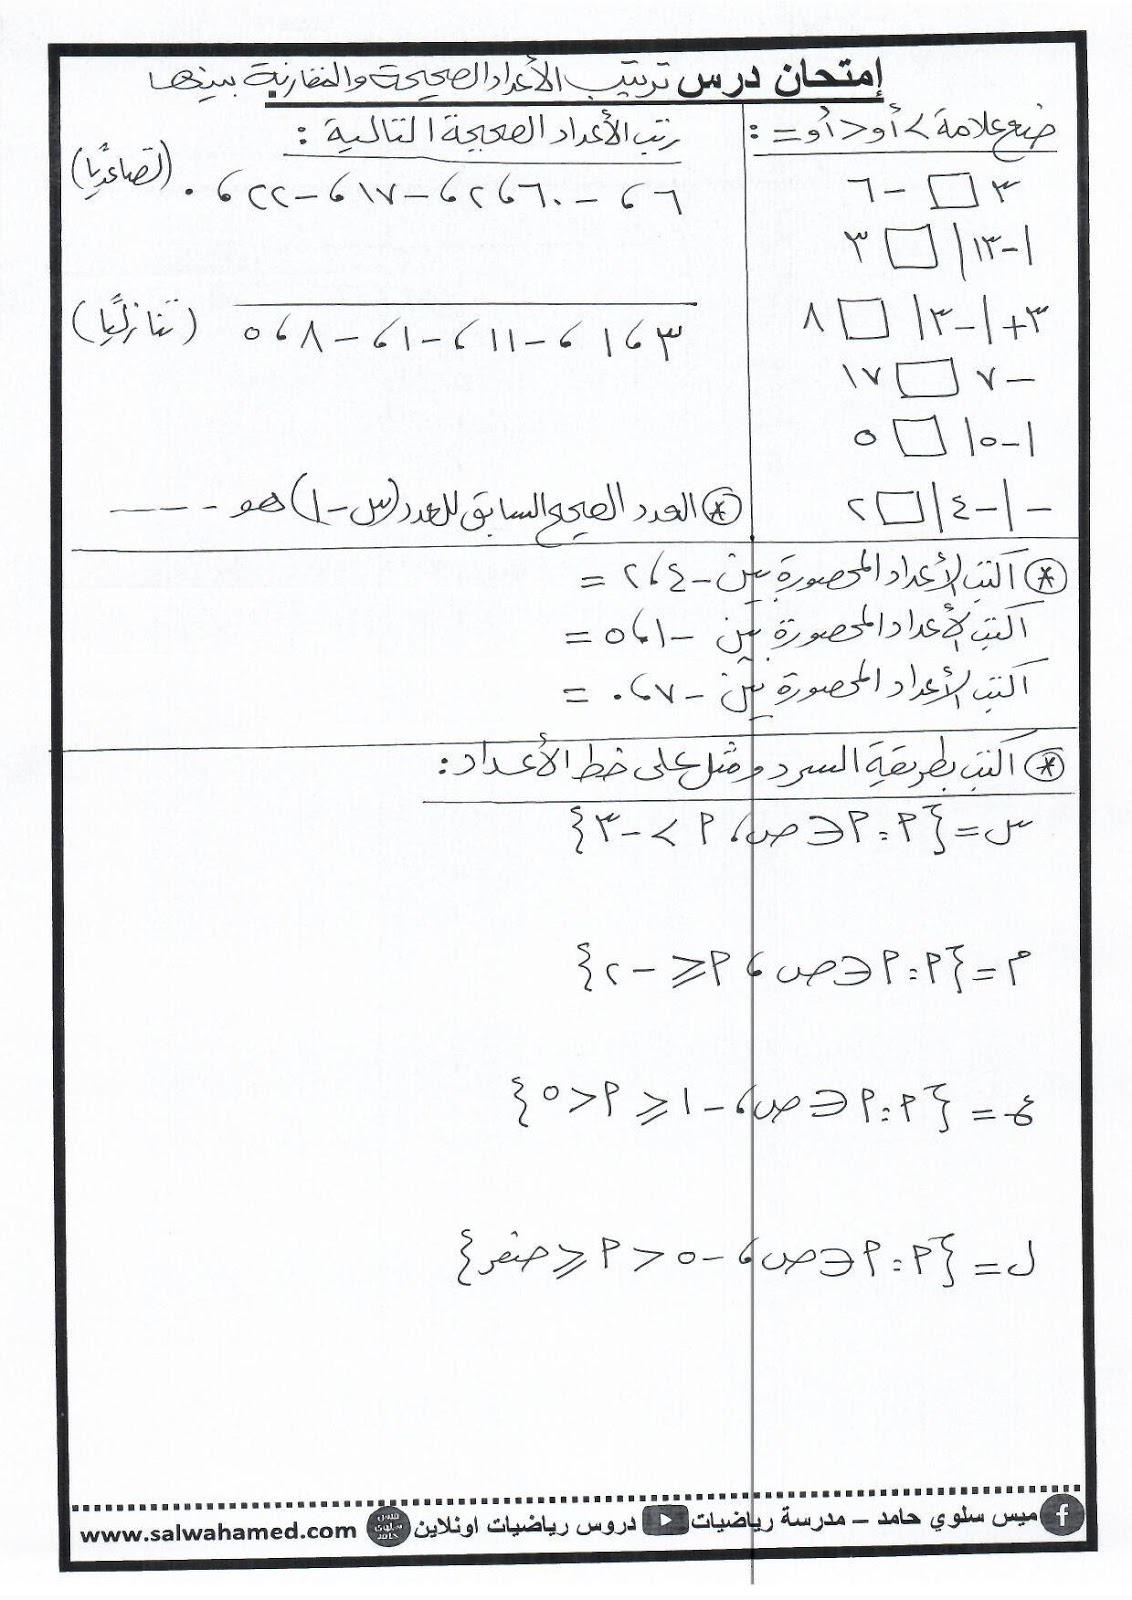 إمتحان درس ترتيب الأعداد الصحيحة والمقارنة بينها
ضع علامة > أو < أو = :
٣ □ -٦
|-١٣| □ ٣
٣+|-٣| □ ٨
-٧ □ ١٧
|-٥| □ ٥
-|-٤| □ ٢
رتب الأعداد الصحيحة التالية :
٦ ، -٦٠ ، ٢ ، -١٧ ، -٢٢ ، ٠ (تصاعديًا)
٣ ، ١ ، -١١ ، -١ ، -٨ ، ٥ (تنازليًا)
* العدد الصحيح السابق للعدد (س-١) هو ----
* اكتب الأعداد المحصورة بين -٤ ، ٢ =
اكتب الأعداد المحصورة بين -١ ، ٥ =
اكتب الأعداد المحصورة بين -٧ ، ٠ =
* اكتب بطريقة السرد ومثل على خط الأعداد :
س = {٢ : ٢ ∈ ص ، ٢ > -٣}
م = {٢ : ٢ ∈ ص ، ٢ ≤ -٢}
ع = {٢ : ٢ ∈ ص ، -١ ≤ ٢ < ٥}
ل = {٢ : ٢ ∈ ص ، -٥ < ٢ ≤ صفر}
ميس سلوي حامد – مدرسة رياضيات دروس رياضيات اونلاين www.salwahamed.com